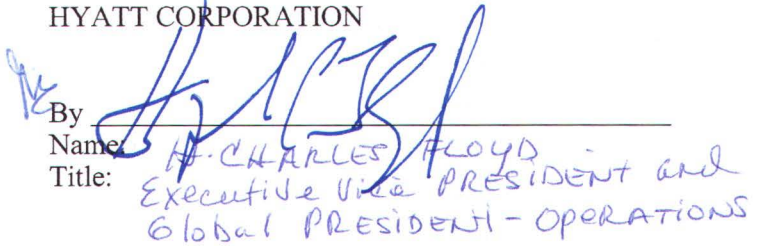 HYATT CORPORATION
By
Name: H. CHARLES FLOYD
Title: Executive Vice PRESIDENT and
Global PRESIDENT - OPERATIONS